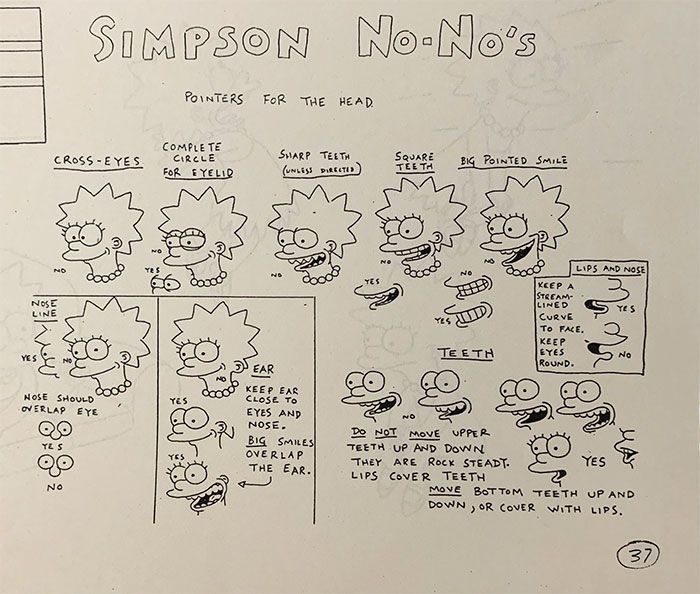 SIMPSON NO-NO'S
POINTERS FOR THE HEAD.
CROSS-EYES
NO
COMPLETE
CIRCLE
FOR EYELID
NO
YES
SHARP TEETH
(UNLESS DIRECTED)
NO
SQUARE
TEETH
NO
YES
NO
YES
BIG POINTED SMILE
NO
LIPS AND NOSE
KEEP A
STREAM-
LINED
CURVE
TO FACE.
KEEP
EYES
ROUND.
YES
NO
NOSE
LINE
YES
NO
NOSE SHOULD
OVERLAP EYE
YES
NO
NO
EAR
KEEP EAR
CLOSE TO
EYES AND
NOSE.
BIG SMILES
OVERLAP
THE EAR.
YES
YES
TEETH
NO
DO NOT MOVE UPPER
TEETH UP AND DOWN
THEY ARE ROCK STEADY.
LIPS COVER TEETH
YES
MOVE BOTTOM TEETH UP AND
DOWN, OR COVER WITH LIPS.
37